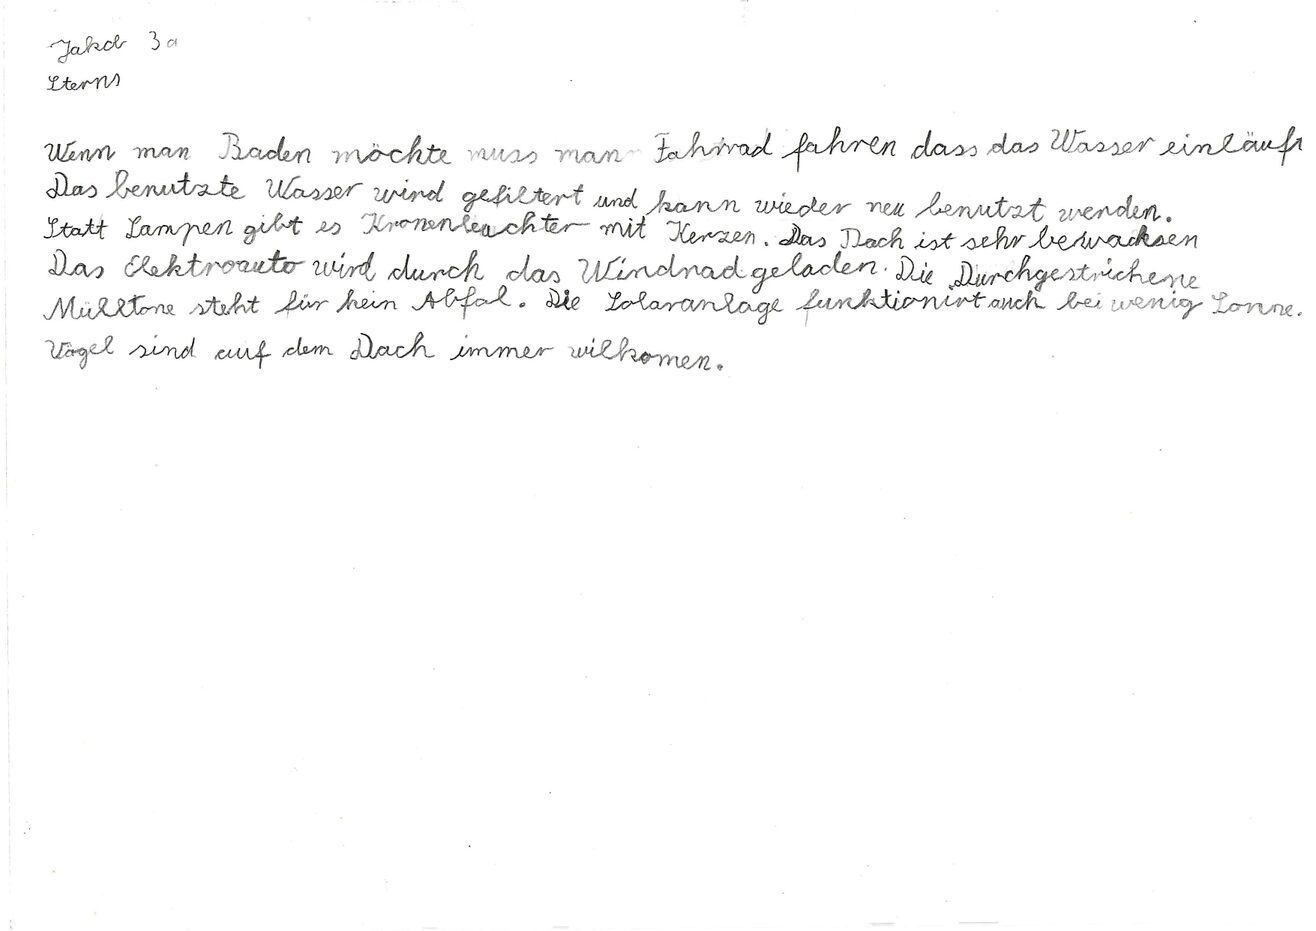 Jakob 3a
Sterns
Wenn man Baden möchte muss man Fahrrad fahren dass das Wasser einläuft
Das benutzte Wasser wird gefiltert und kann wieder neu benutzt werden.
Statt Lampen gibt es Kronenleuchter mit Kerzen. Das Dach ist sehr bewacksen
Das Elektroauto wird durch das Windrad geladen. Die Durchgestrichene
Mülltone steht für kein Abfal. Die Solaranlage funktionirt auch bei wenig Sonne.
Vögel sind auf dem Dach immer wilkomen.